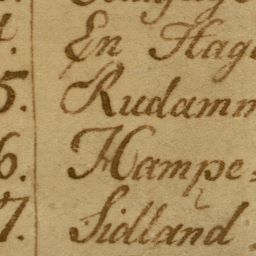 4. En Hag
5. Rudamm
6. Hampe=
7. Sidland